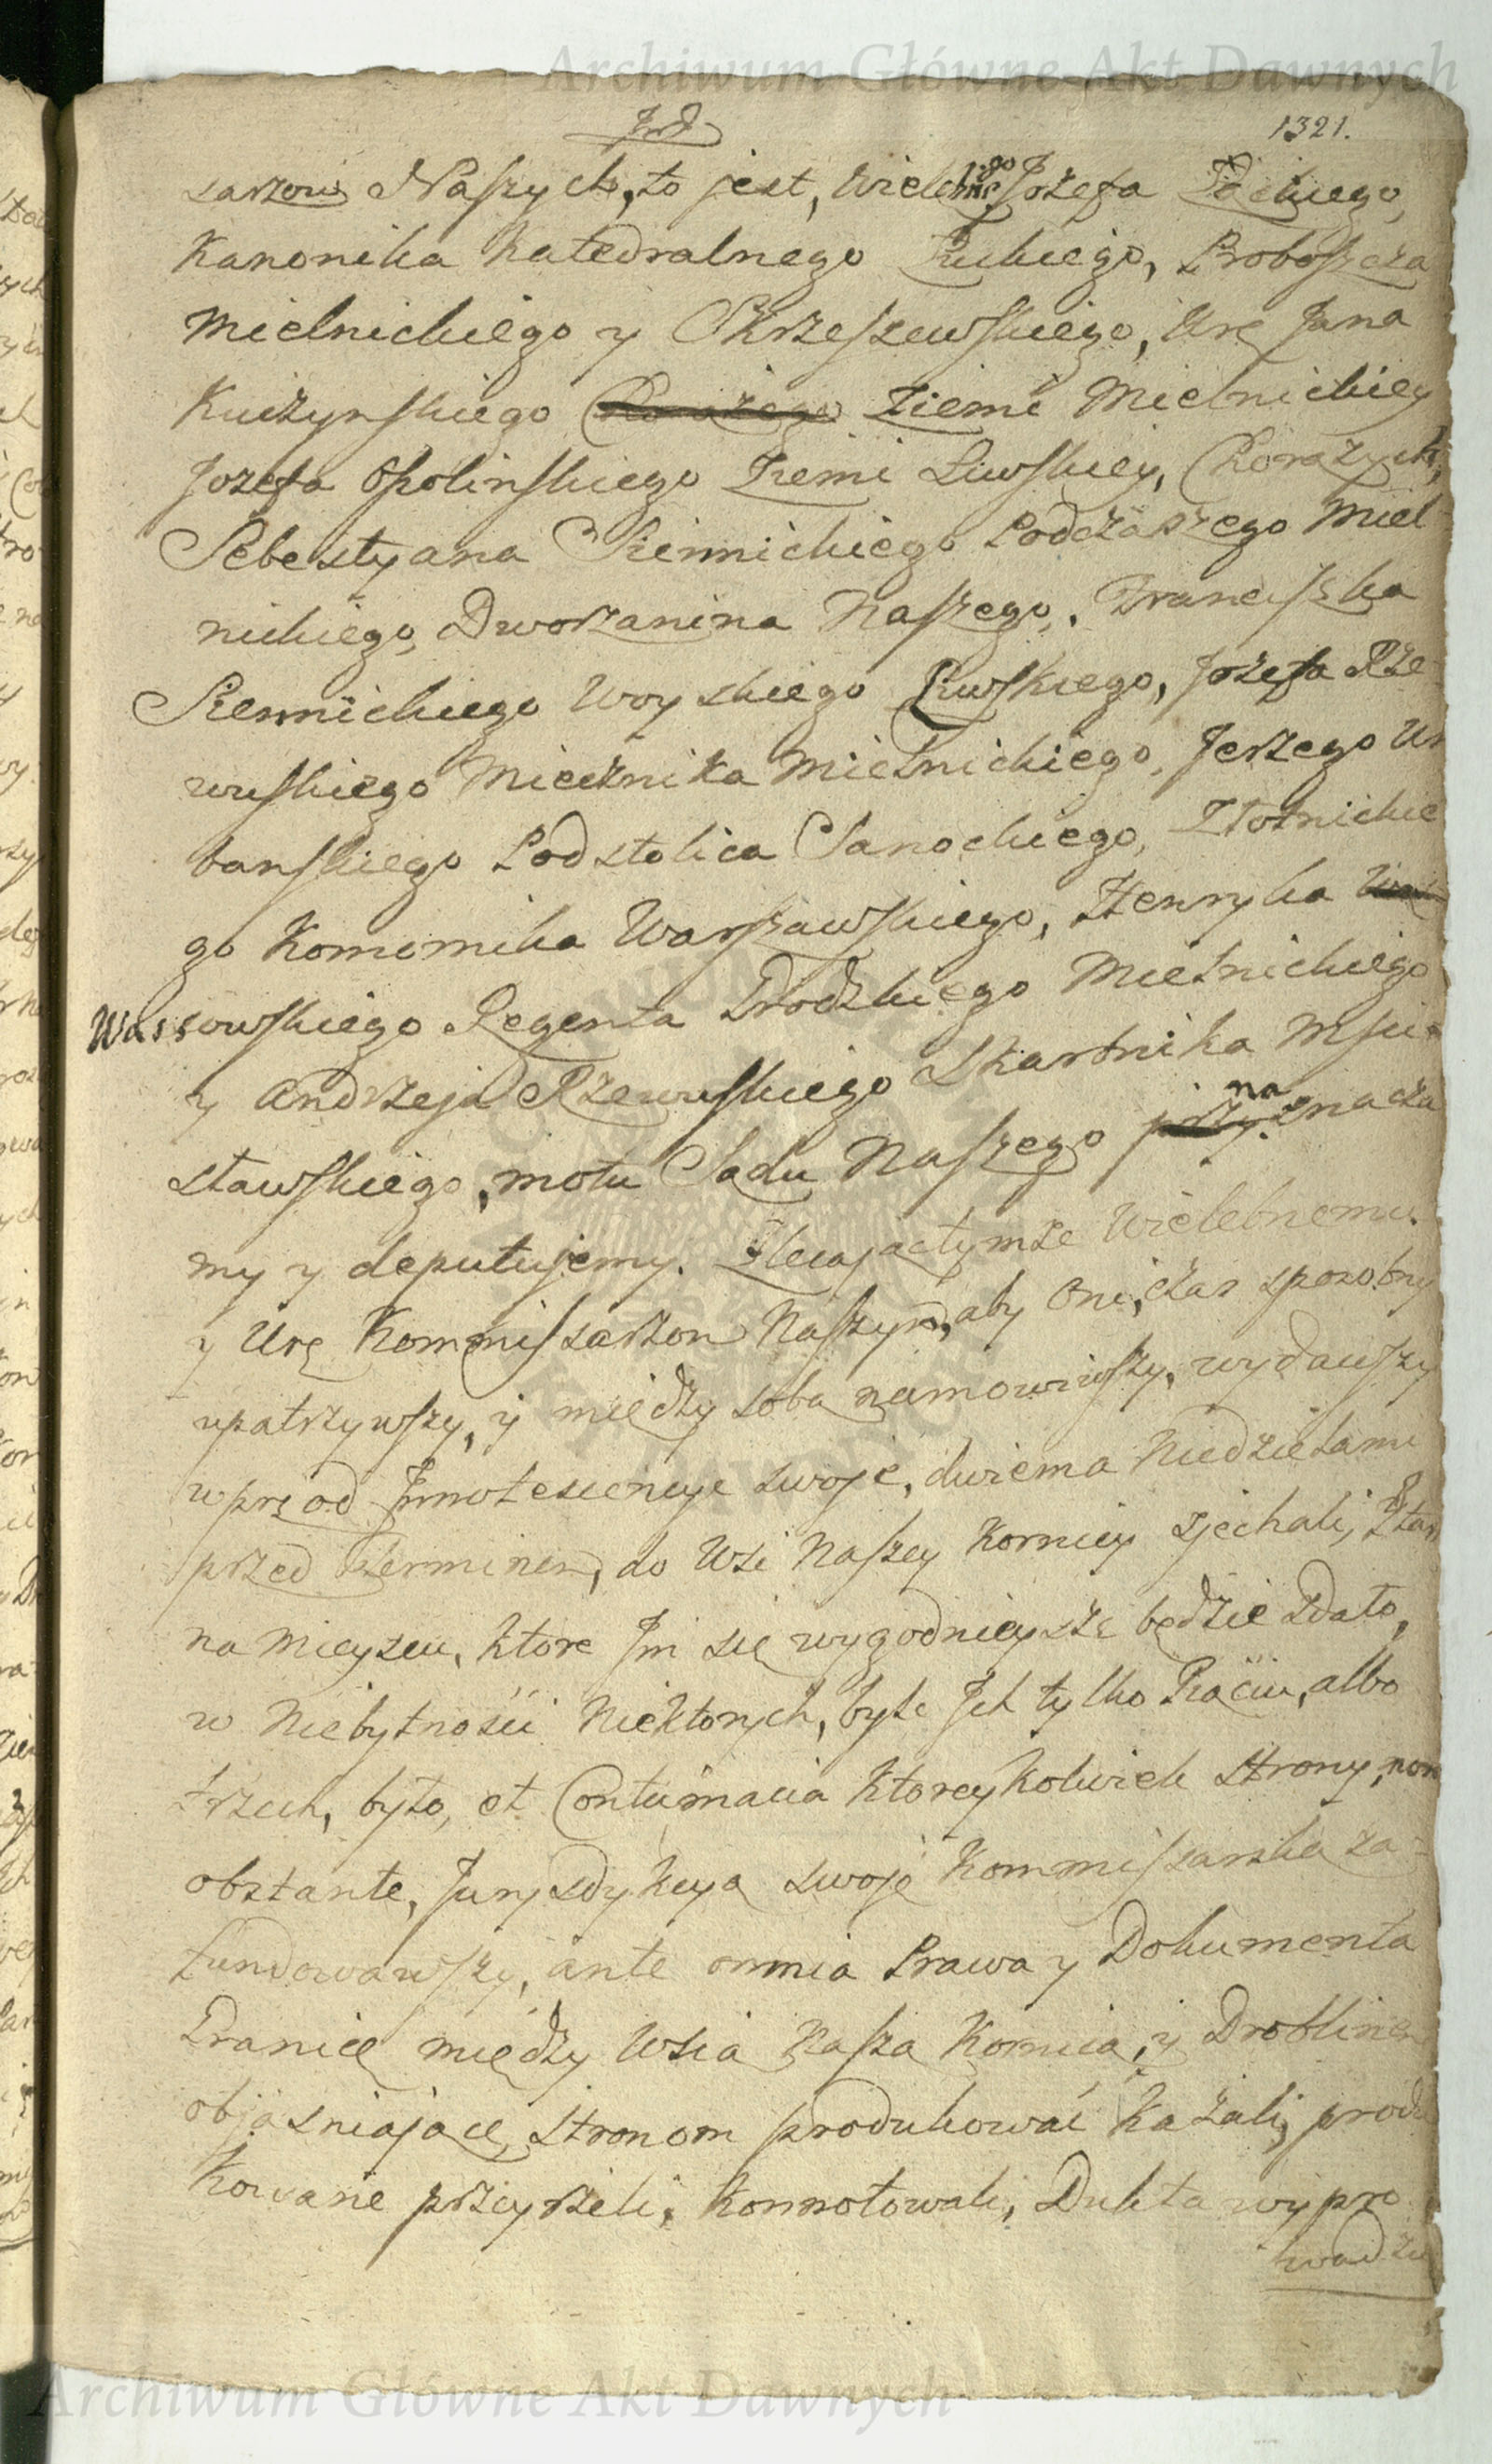 Archiwum Główne Akt Dawnych
1321.
sarzow Naszych, to jest, Wielebnego Jozefa
Kanonika Katedralnego Łuckiego, Proboszcza
Mielnickiego y Skrzeszewskiego, Ur. Jana
Kuczynskiego Chorążego Ziemi Mielnickiey
Jozefa Opolinskiego Ziemi Liwskiey, Chorążych,
Sebestyana Siennickiego Podczaszego Miel
nickiego, Dworzanina Naszego, Franciszka
Siennickiego Woyskiego Liwskiego, Jozefa Rze
wuskiego Miecznika Mielnickiego, Jerzego Ur
banskiego Podstolica Sanockiego, Złotnickie
go Komornika Warszawskiego, Henryka
Wassowskiego Regenta Grodzkiego Mielnickiego
y Andrzeja Rzewuskiego Skarbnika Msci
sławskiego, motu Sądu Naszego przy na znacza
my y deputujemy. Zlecając tymże Wielebnemu
y Ur. Kommissarzom Naszym, aby Oni, czas sposobny
upatrzywszy, y między sobą namowiwszy, wydawszy
wprzod Innotescencye swoje, dwiema Niedzielami
przed Terminem, do Wsi Naszey Kornicy zjechali,
na Mieyscu, ktore Im się wygodnieysze będzie zdało,
w Niebytnosci Niektorych, byle Ich tylko Pięciu, albo
trzech, było, et Contumacia Ktoreykolwiek Strony, non
obstante, Jurysdykcyą swoję Kommissarską za-
fundowawszy, ante omnia Prawa y Dokumenta
Granicę między Wsią Naszą Kornicą, y Droblinem
objasniające, Stronom produkować Kazali, produ
kowane przeyrzeli, Konnotowali, Dukta wypro
wadzic
Archiwum Główne Akt Dawnych